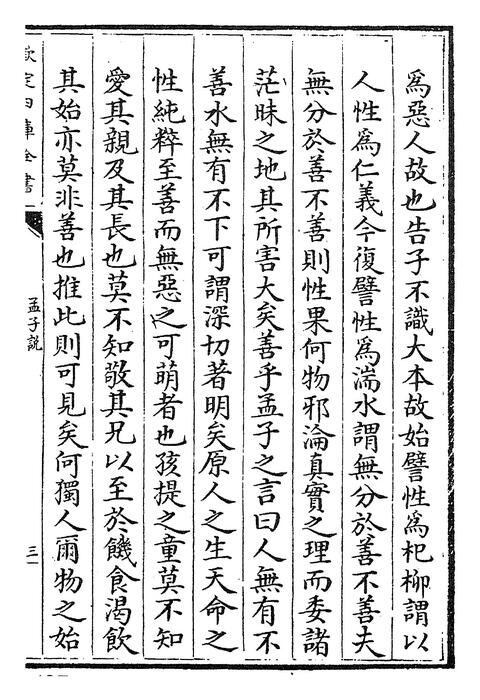 爲惡人故也告子不識大本故始譬性爲杞柳謂以
人性爲仁義今復譬性爲湍水謂無分於善不善夫
無分於善不善則性果何物邪淪真實之理而委諸
茫昧之地其所害大矣善乎孟子之言曰人無有不
善水無有不下可謂深切著明矣原人之生天命之
性純粹至善而無惡之可萌者也孩提之童莫不知
愛其親及其長也莫不知敬其兄以至於饑食渴飲
其始亦莫非善也推此則可見矣何獨人爾物之始
欽定四庫全書
孟子說
三